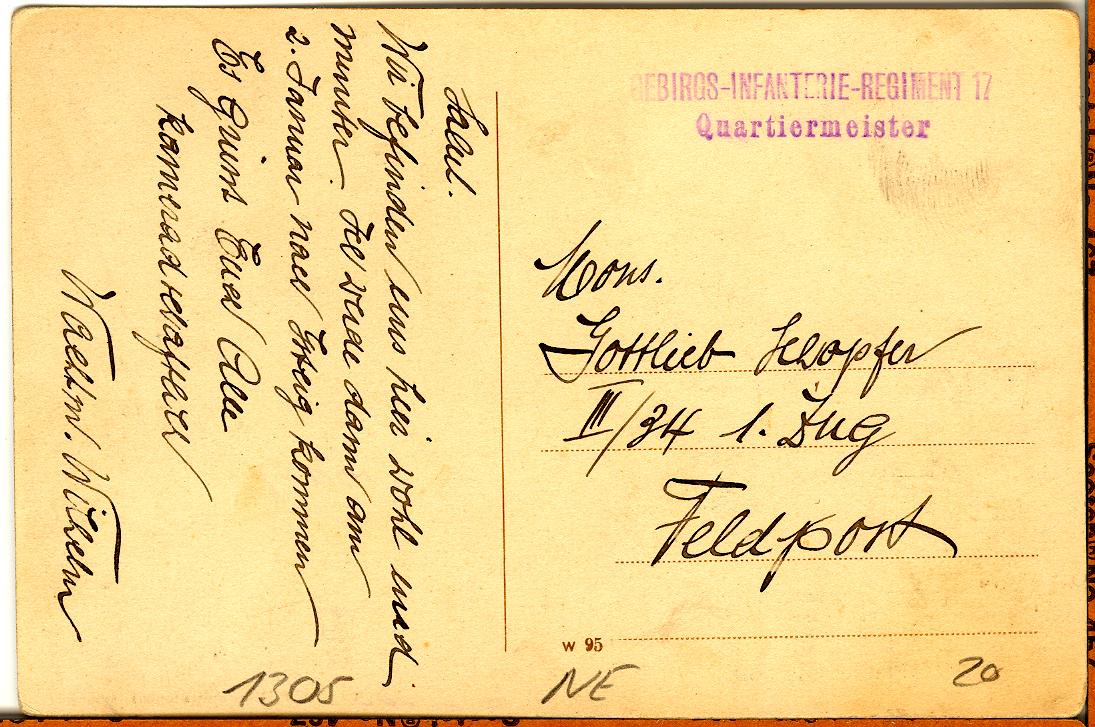 Salut.
Wir befinden uns hier wohl und
munter. Ich werde dann am
2. Januar nach Gsteig kommen
Es Grüsst Euch Alle
kameradschaftlich
Wachtm. Wilhelm
GEBIRGS-INFANTERIE-REGIMENT 17
Quartiermeister
Mons.
Gottlieb Schopfer
III/34 1. Zug
Feldpost
W 95
1305 NE 20